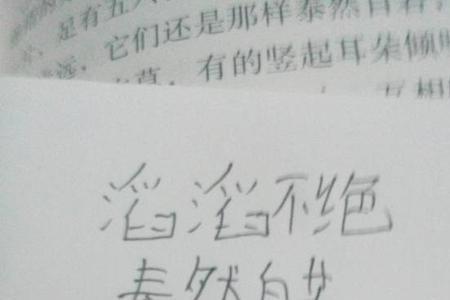 足有五六
远，它们还是那样泰然自若，
草，有的竖起耳朵倾
互相
滔滔不绝
泰然自若